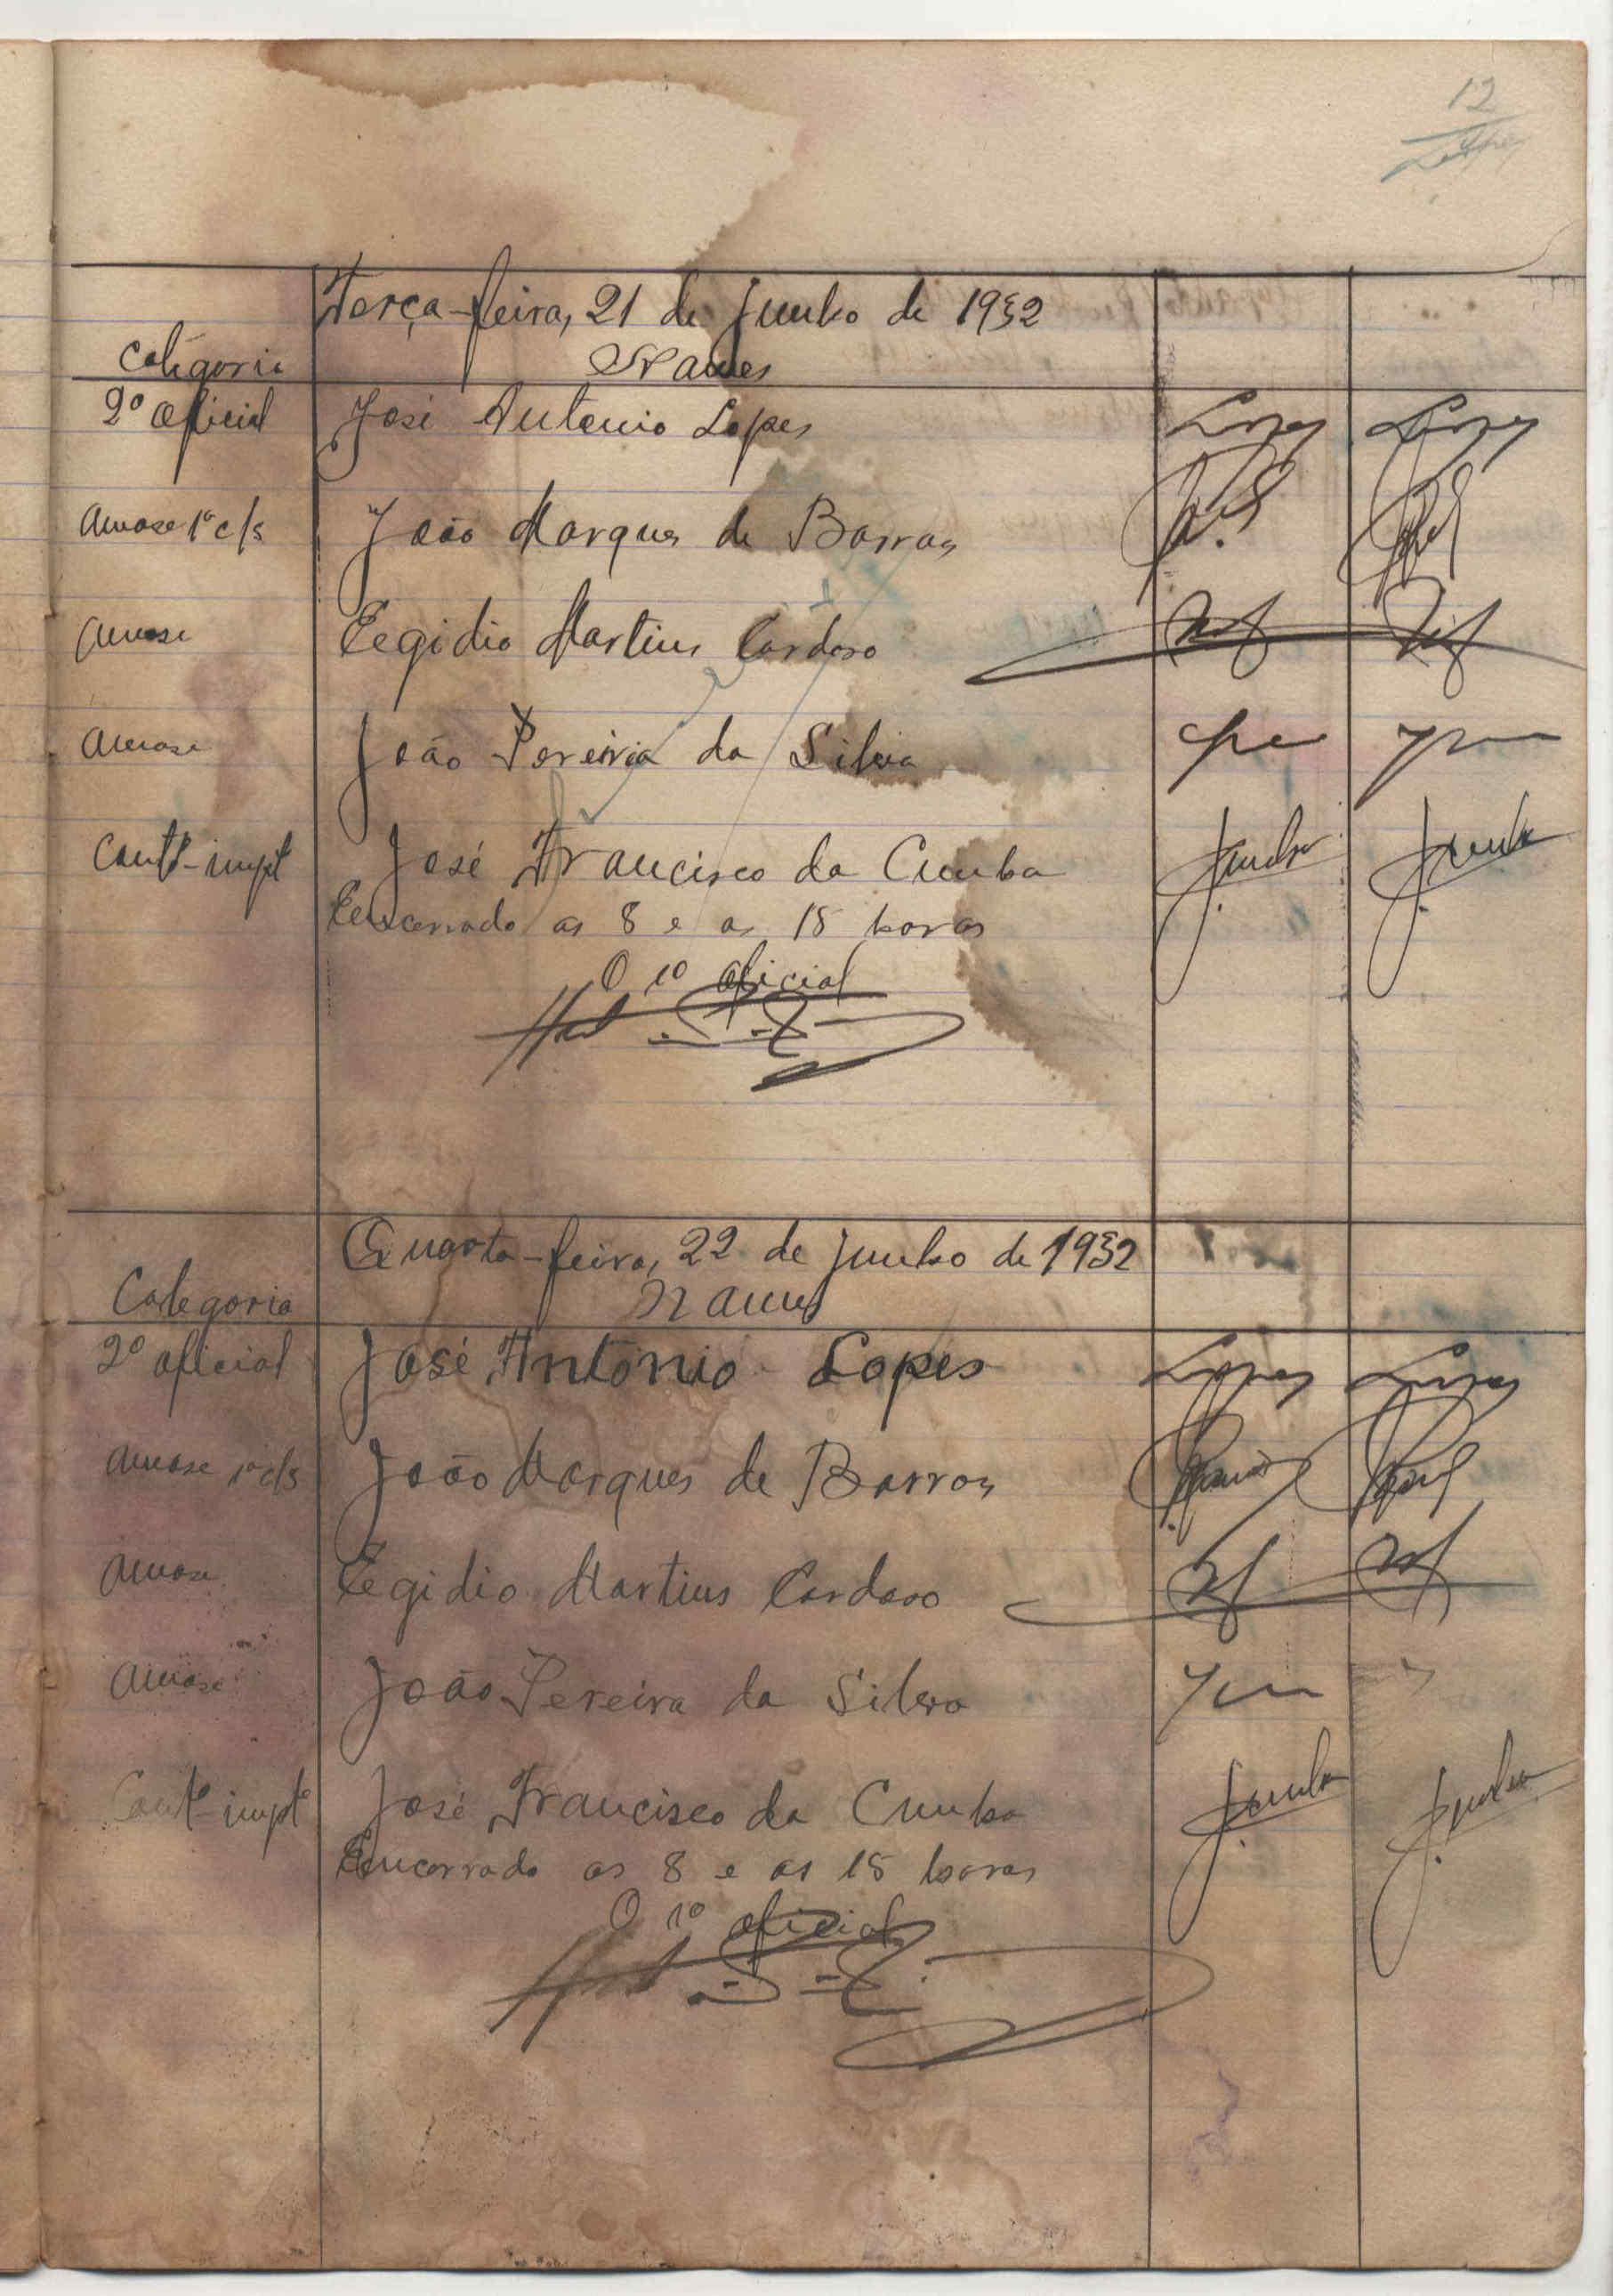 12
Terça-feira, 21 de Junho de 1932
Categoria Nomes
2º oficial José Antonio Lopes Lopes Lopes
Amase 1ª c/s João Marques de Barros
Amase Eegidio Martins Cardoso
Amase João Pereira da Silva
Contº-impt José Francisco da Cunha JCunha JCunha
Eencerrado as 8 e as 15 horas
O 1º oficial
Quarta-feira, 22 de Junho de 1932
Categoria Nomes
2º oficial José António Lopes Lopes Lopes
Amase 1ª c/s João Marques de Barros
Amase Eegidio Martins Cardoso
Amase João Pereira da Silva
Contº-imptº José Francisco da Cunha JCunha JCunha
Eencerrado as 8 e as 15 horas
O 1º oficial